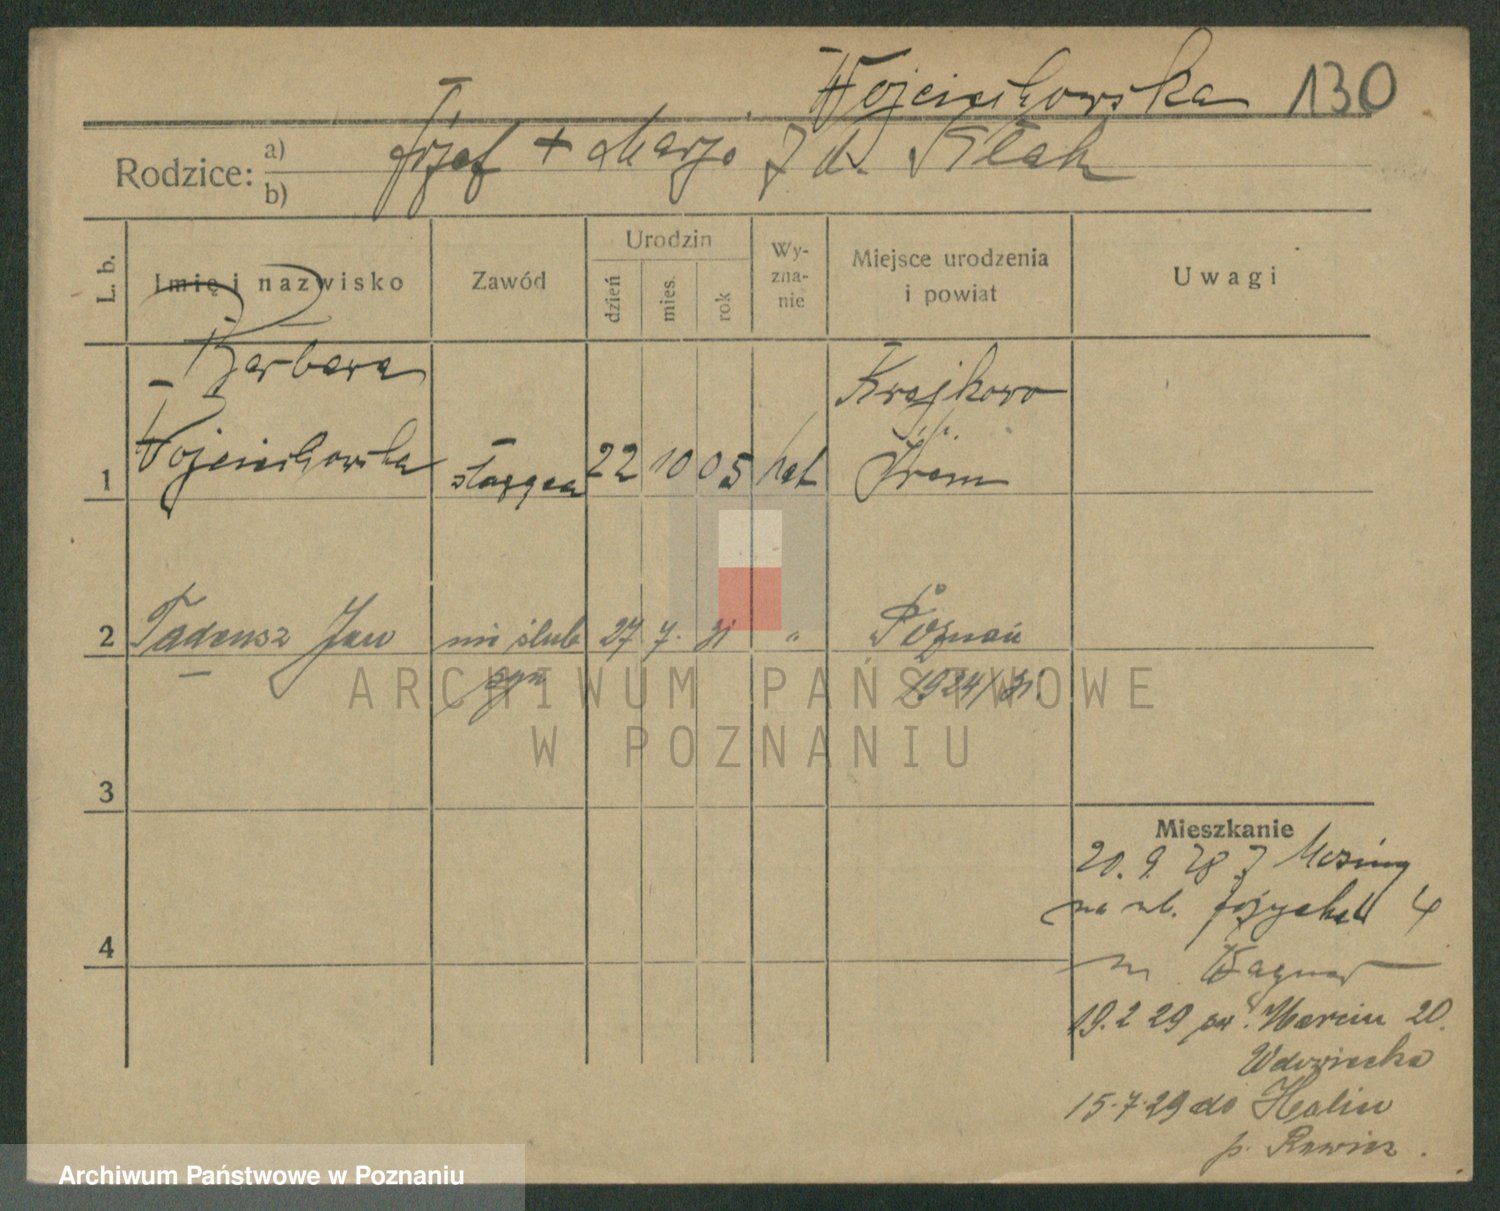 Wojciechowska 130
Rodzice: a) b) Józef + Marja z d. Ptak
L. b.
Imię i nazwisko
Zawód
Urodzin
dzień
mies.
rok
Wy-
zna-
nie
Miejsce urodzenia
i powiat
Uwagi
Barbara Krajkowo
1 Wojciechowska służąca 22 10 05 kat Śrem
2 Tadeusz Jan nie ślub 27 7. 31 " Poznań
syn 1924/31
ARCHIWUM PAŃSTWOWE
W POZNANIU
3
4
Mieszkanie
20. 9. 28 z Mosiny
na ul. 4
m Wagner
19. 2 29 św. Marcin 20.
Wdowiecka
15.7.29 do
p. Rawicz.
Archiwum Państwowe w Poznaniu